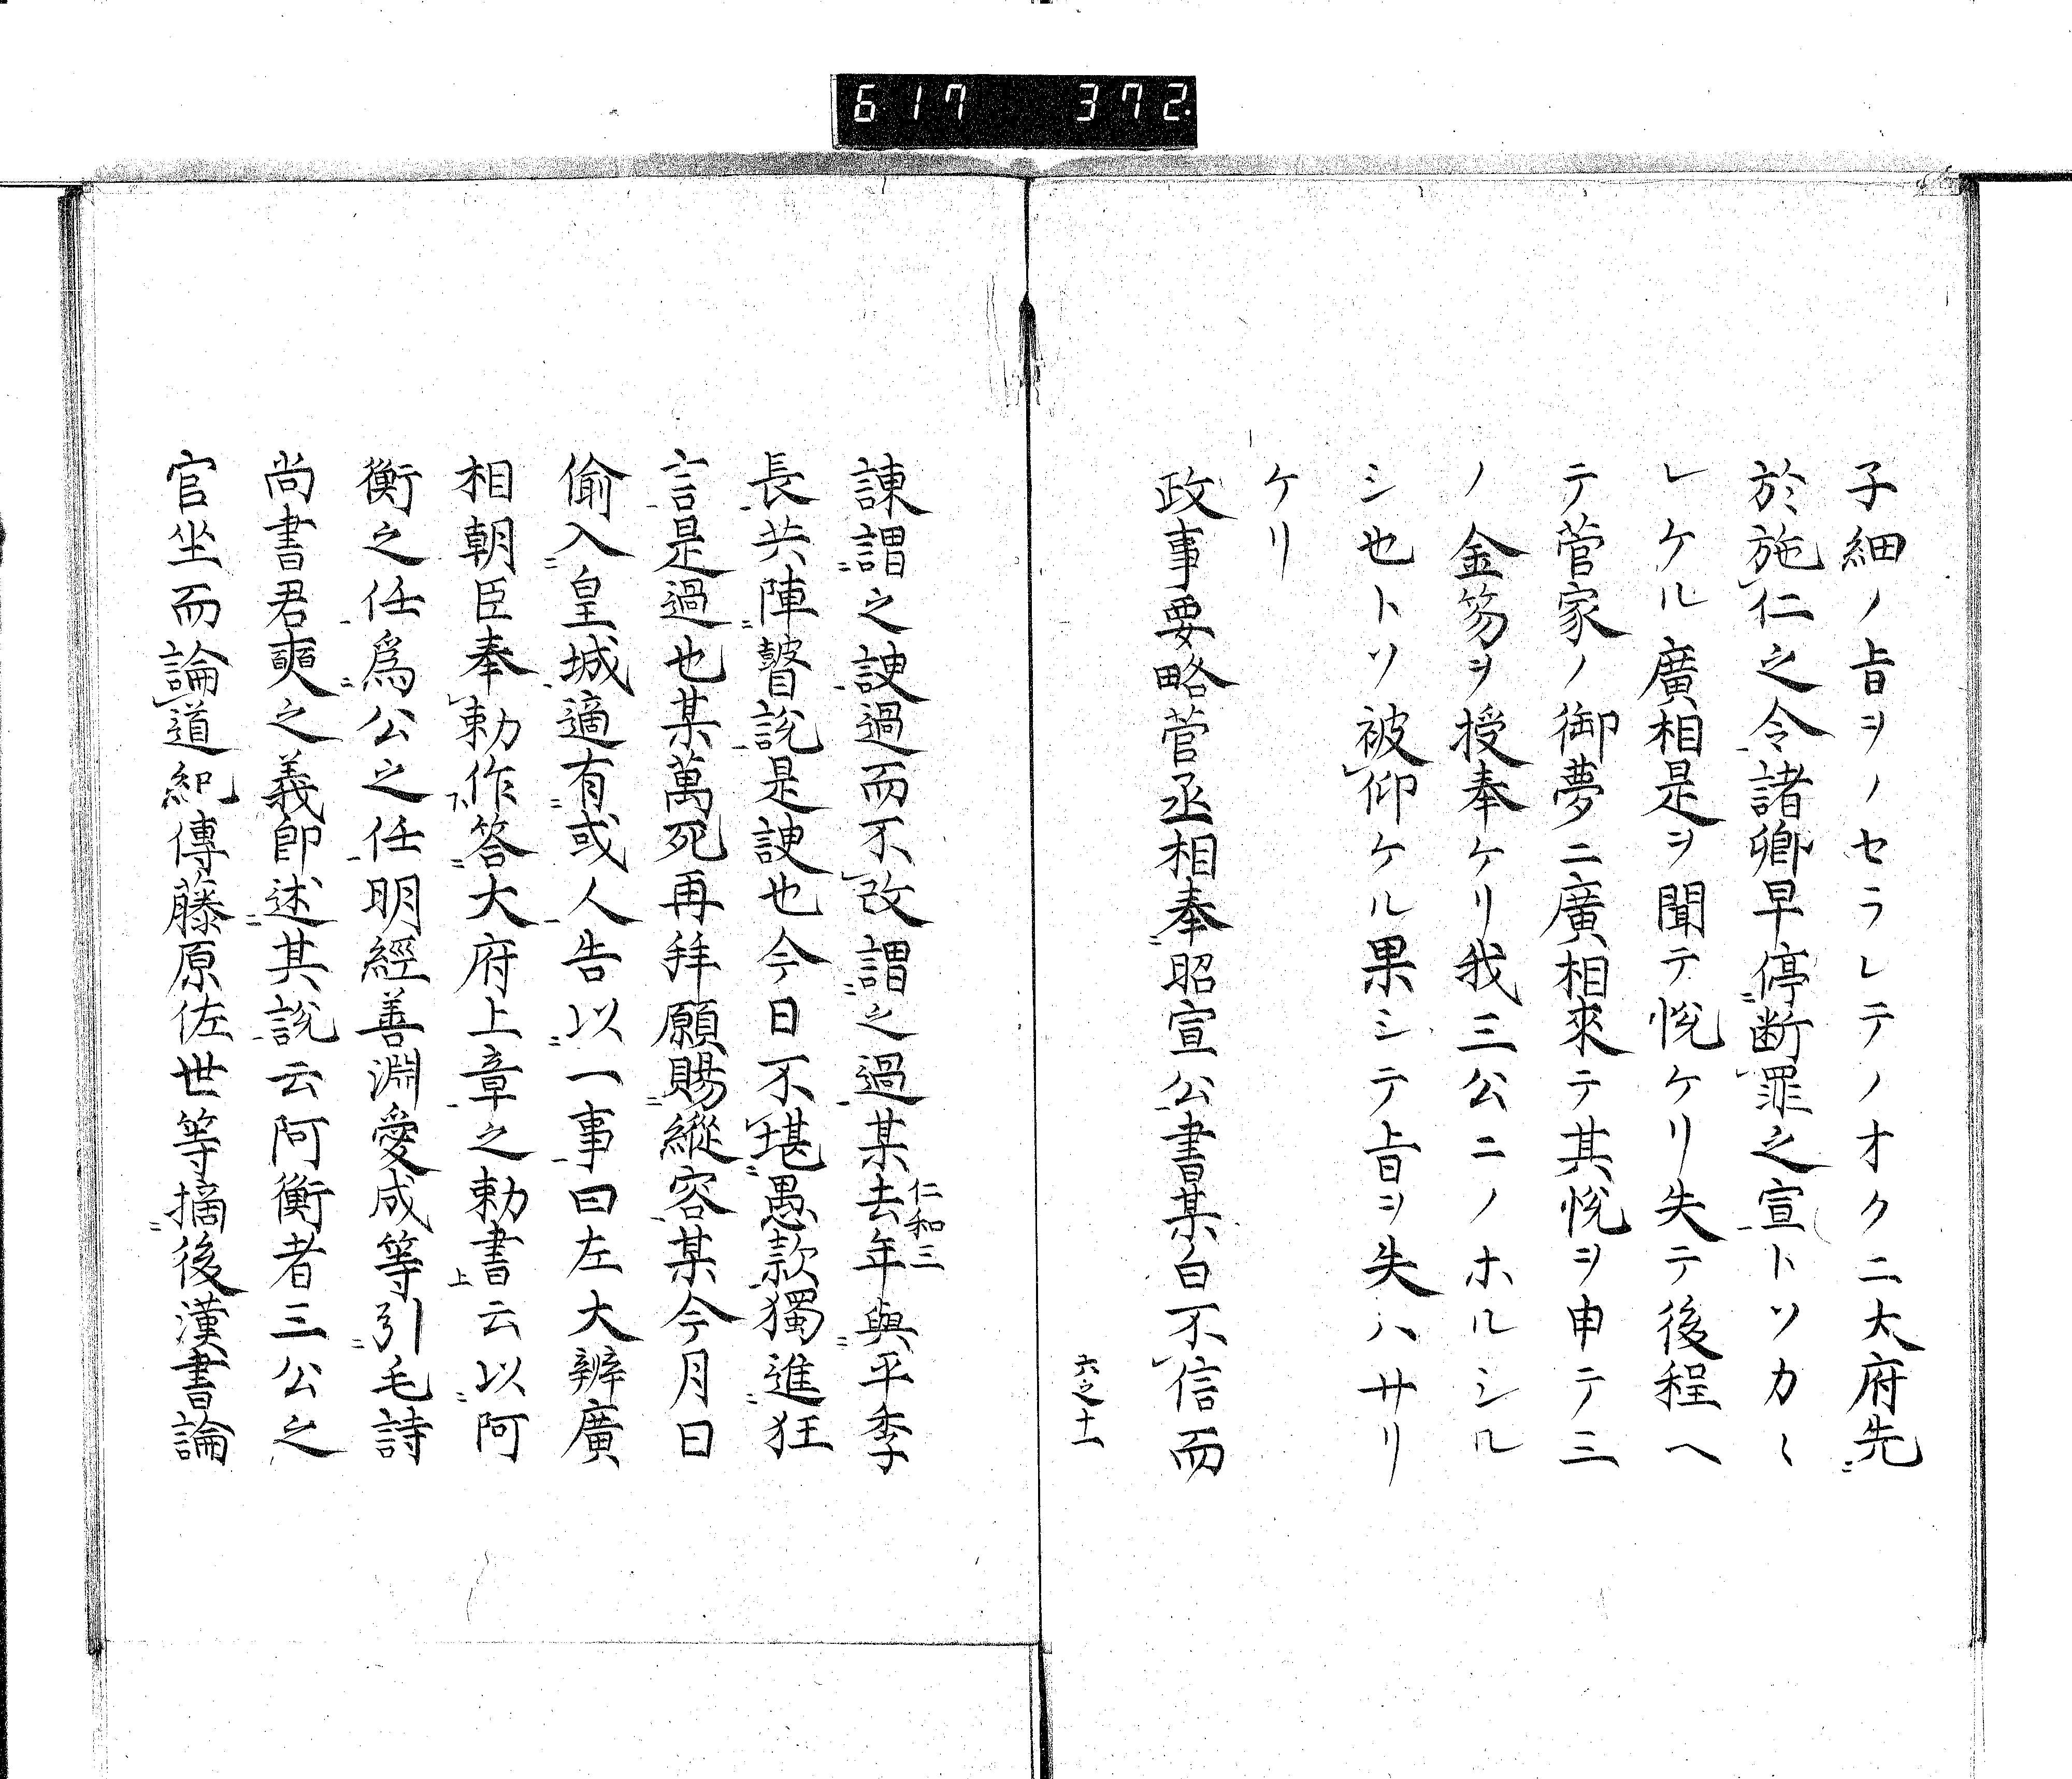 617 372
子細ノ旨ヲノセラレテノオクニ大府先
於施仁之令諸卿早停断罪之宣トソカヽ
レケル廣相是ヲ聞テ悦ケリ失テ後程ヘ
テ菅家ノ御夢ニ廣相來テ其悦ヲ申テ三
ノ金笏ヲ授奉ケリ我三公ニノホルシル
シ也トソ被仰ケル果シテ旨ヲ失ハサリ
ケリ
政事要略菅丞相奉昭宣公書某白不信而
六之十一
諫謂之諛過而不改謂之過某去年與平季
仁和三
長共陣瞽説是諛也今日不堪愚款獨進狂
言是過也某萬死再拜願賜縱容某今月日
偷入皇城適有或人告以一事曰左大辨廣
相朝臣奉勅作答大府上章之勅書云以阿
衡之任爲公之任明經善淵愛成等引毛詩
尚書君奭之義即述其説云阿衡者三公之
官坐而論道紀傳藤原佐世等摘後漢書論